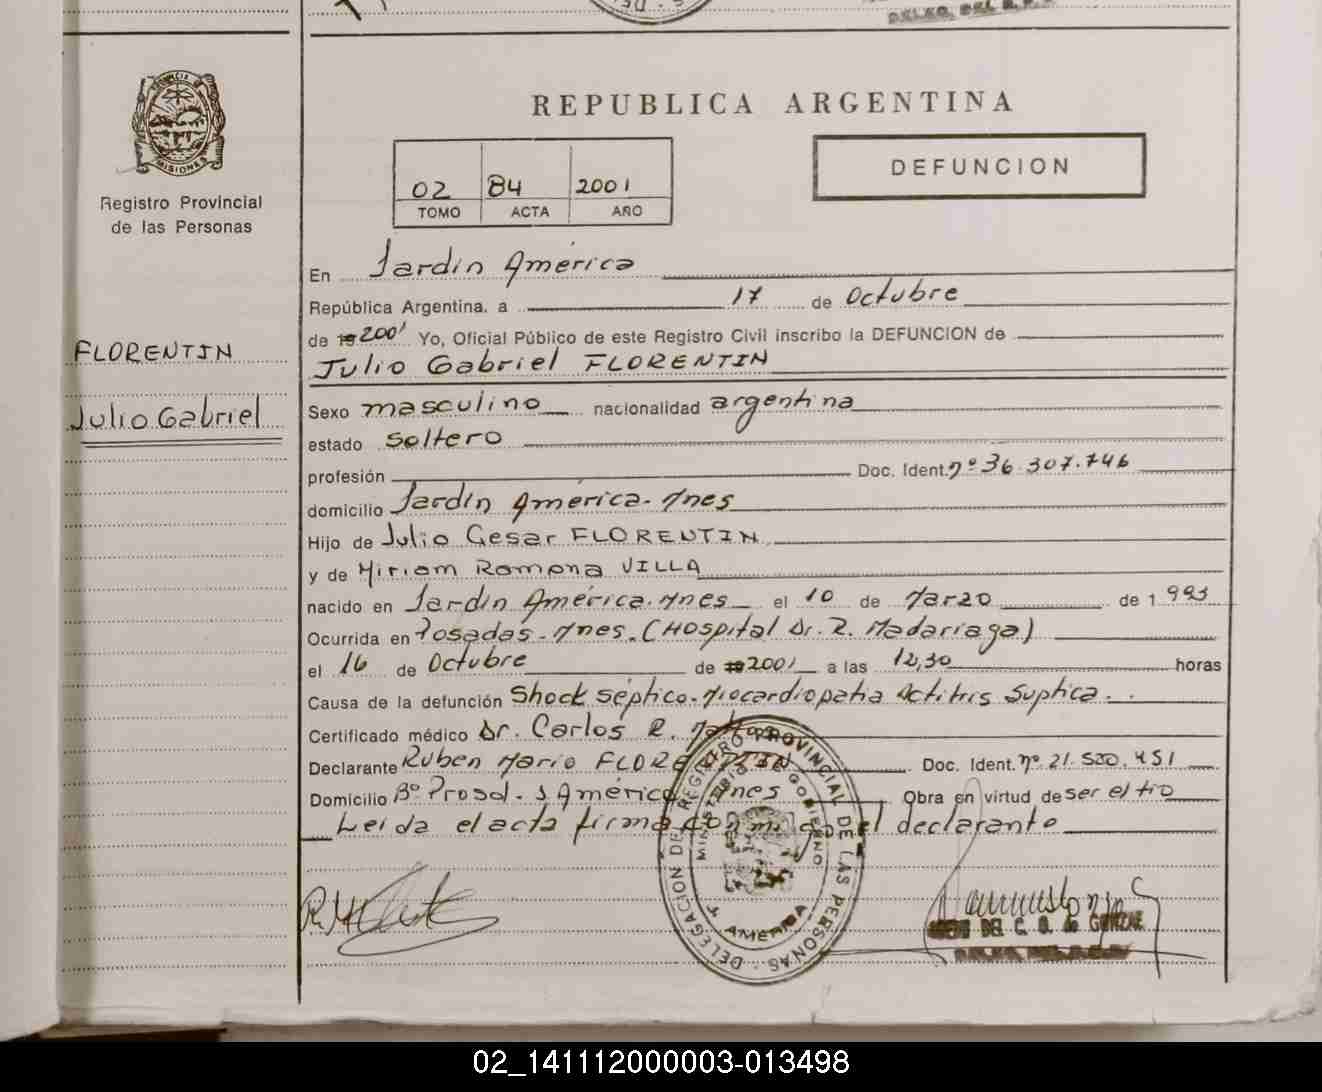 REPUBLICA ARGENTINA
PROVINCIA DE
MISIONES
Registro Provincial
de las Personas
DEFUNCION
02 84 2001
TOMO ACTA AÑO
FLORENTIN
Julio Gabriel
En Jardín América
República Argentina, a 17 de Octubre
de 19 2001 Yo, Oficial Público de este Registro Civil inscribo la DEFUNCION de
Julio Gabriel FLORENTIN
Sexo masculino nacionalidad argentina
estado soltero
profesión Doc. Ident. nº 36.307.746
domicilio Jardín América. Mnes
Hijo de Julio Cesar FLORENTIN
y de Miriam Ramona VILLA
nacido en Jardín América. Mnes el 10 de Marzo de 1 993
Ocurrida en Posadas. Mnes. (Hospital Dr. R. Madariaga)
el 16 de Octubre de 2001 a las 12,30 horas
Causa de la defunción Shock séptico. Miocardiopatia
Certificado médico Dr. Carlos R.
Declarante Ruben Mario FLORENTIN Doc. Ident. nº 21. 451
Domicilio Bº Prosol. J América Mnes Obra en virtud de ser el tío
Leida el acta firma con migo el declarante
DELEGACION DEL REGISTRO PROVINCIAL DE LAS PERSONAS
MINISTERIO DE GOBIERNO
J. AMERICA
DEL C. D. de
02_141112000003-013498